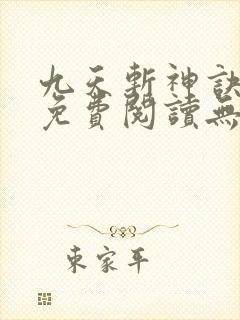 九天斬神訣
免費閱讀無
東家平